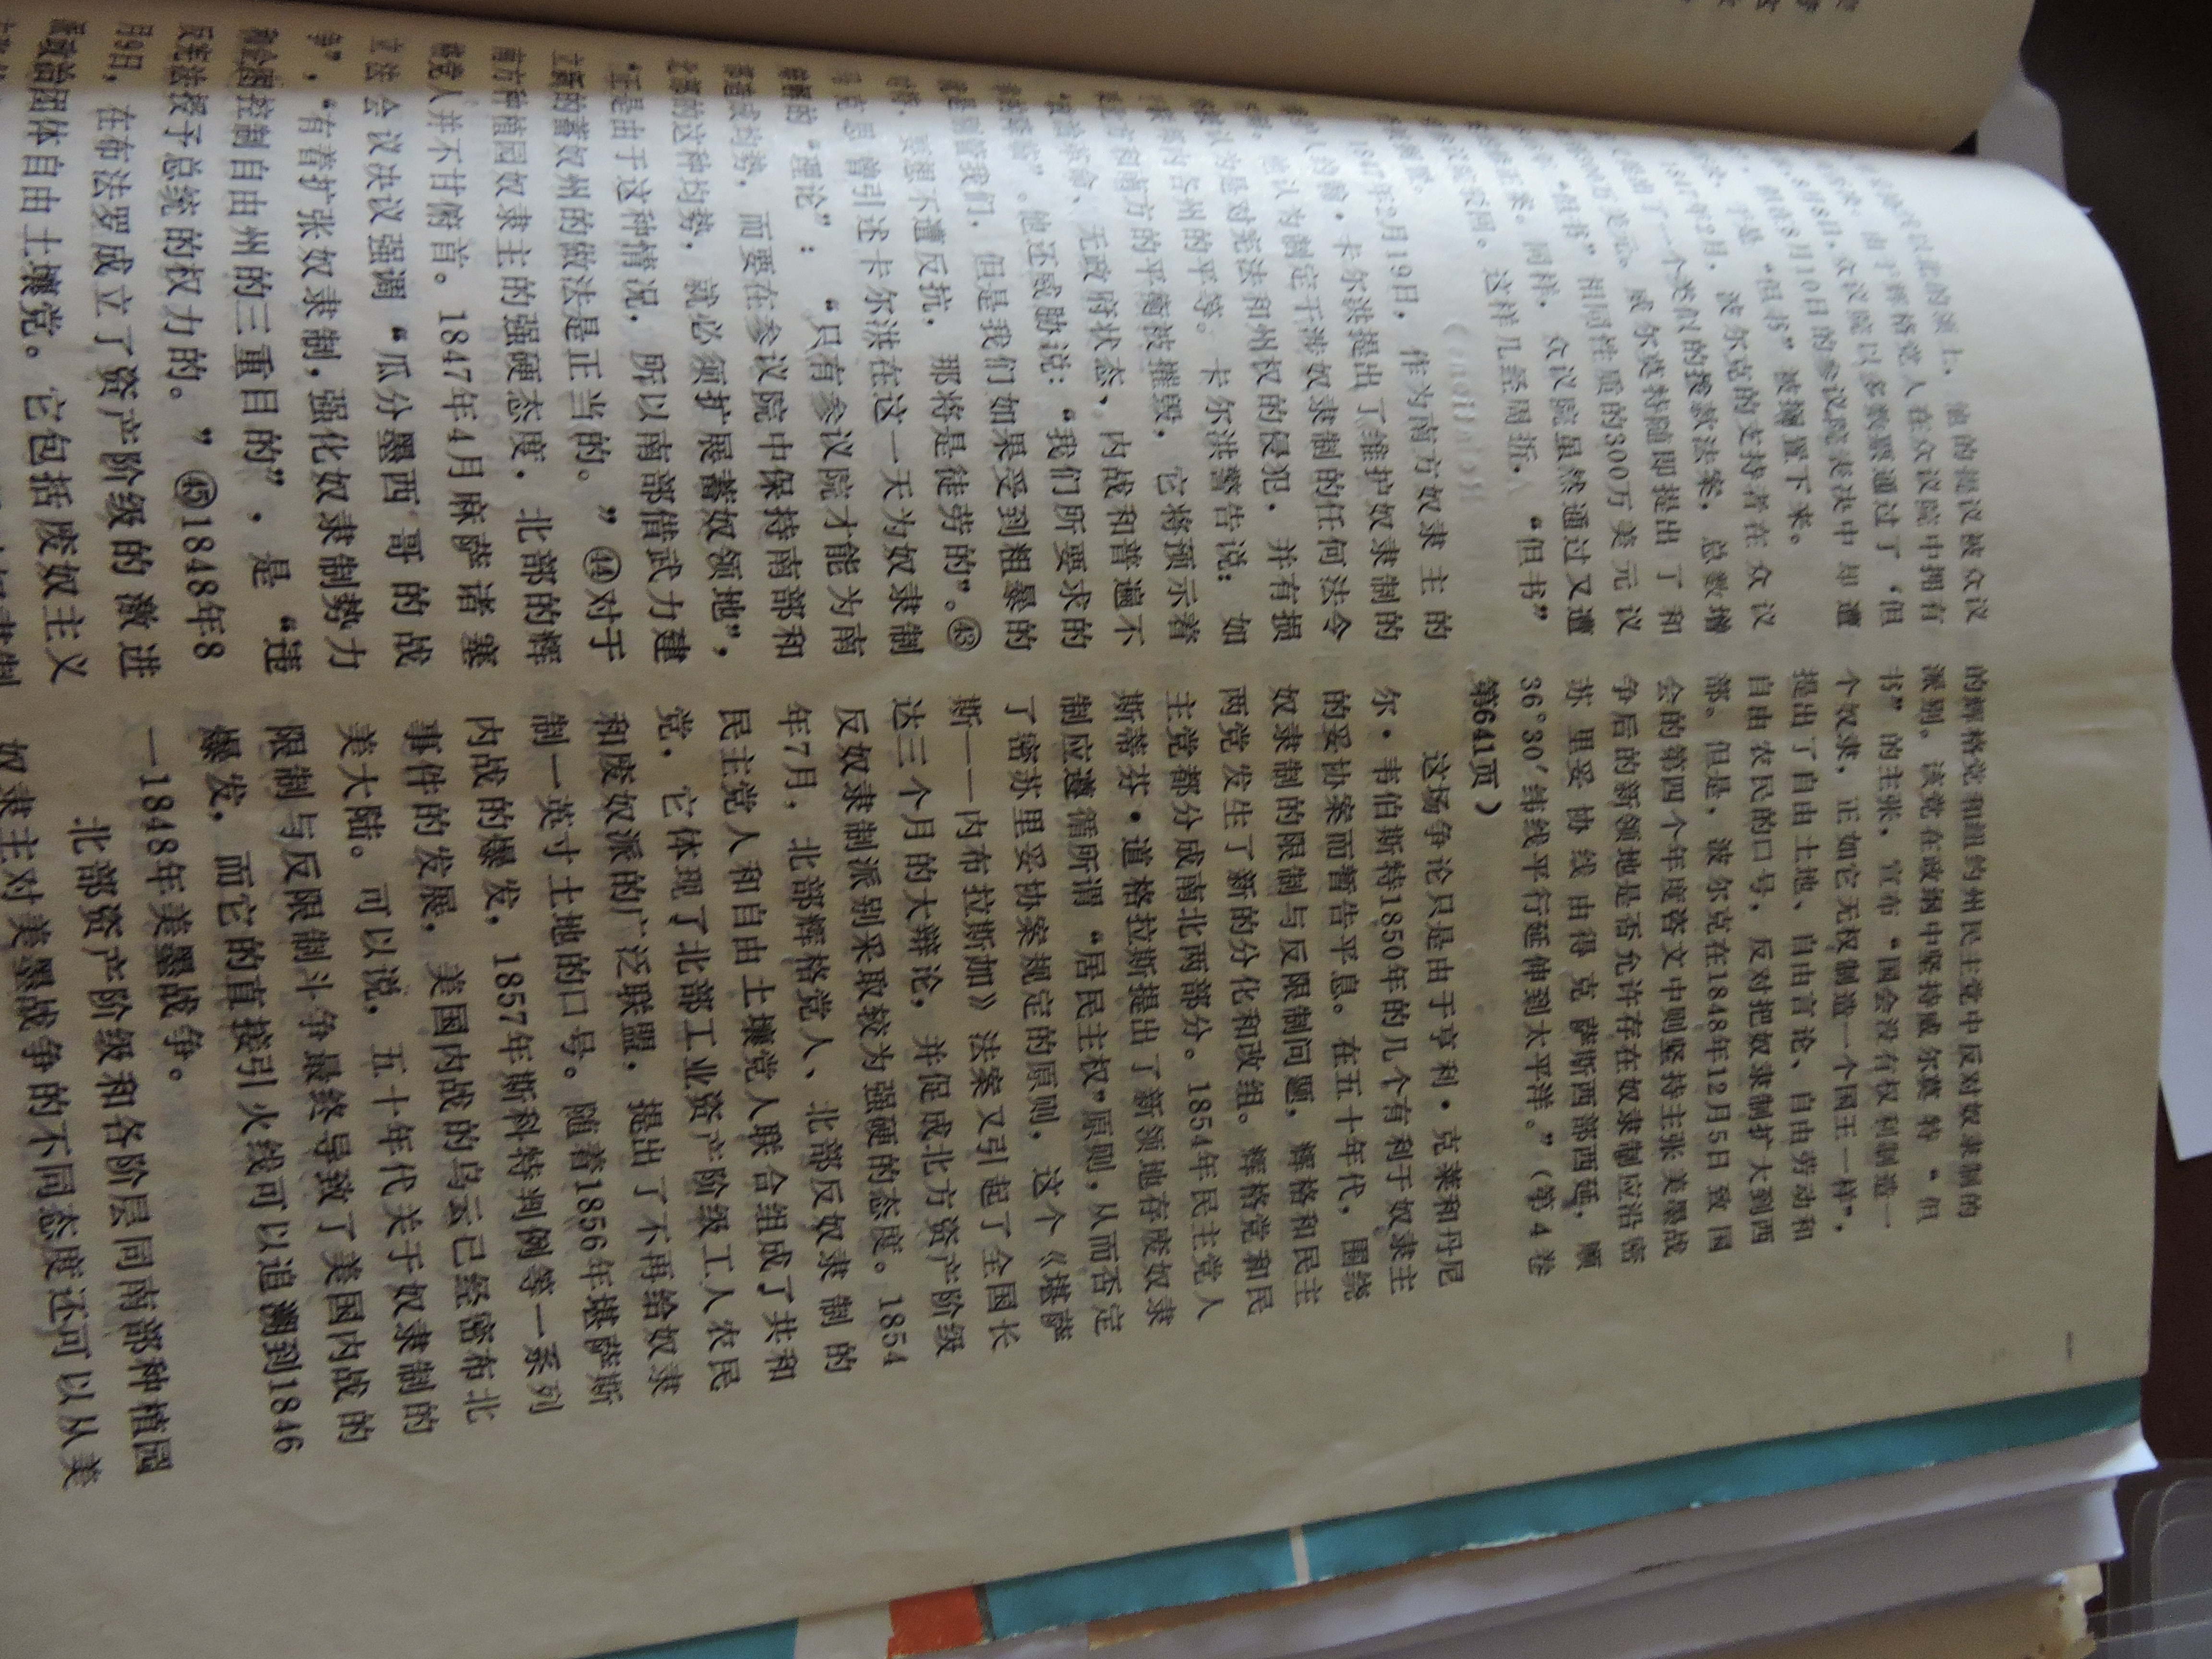 线以北的领土，他的提议被众议
由于辉格党人在众议院中拥有
8月8日，众议院以多数票通过了‘但
但在8月10日的参议院表决中却遭
于是“但书”被搁置下来。
1847年2月，波尔克的支持者在众议
提出了一个类似的拨款法案，总数增
300万美元。威尔莫特随即提出了和
“但书”相同性质的300万美元议
修正案。同样，众议院虽然通过又遭
参议院驳回。这样几经周折，“但书”
被搁置。
1847年2月19日，作为南方奴隶主的
人约翰·卡尔洪提出了维护奴隶制的
他认为制定干涉奴隶制的任何法令
认为是对宪法和州权的侵犯，并有损
内各州的平等。卡尔洪警告说：如
北方和南方的平衡被摧毁，它将预示着
“政治革命、无政府状态、内战和普遍不
的降临”。他还威胁说：“我们所要求的
就是别管我们，但是我们如果受到粗暴的
对待，要想不遭反抗，那将是徒劳的”。㊸
马克思曾引述卡尔洪在这一天为奴隶制
辩解的“理论”：“只有参议院才能为南
部造成均势，而要在参议院中保持南部和
北部的这种均势，就必须扩展蓄奴领地”，
“正是由于这种情况，所以南部借武力建
立新的蓄奴州的做法是正当的。”㊹对于
南方种植园奴隶主的强硬态度，北部的辉
格党人并不甘俯首。1847年4月麻萨诸塞
立法会议决议强调“瓜分墨西哥的战
争”，“有着扩张奴隶制，强化奴隶制势力
和企图控制自由州的三重目的”，是“违
反宪法授予总统的权力的。”㊺1848年8
月9日，在布法罗成立了资产阶级的激进
派政治团体自由土壤党。它包括废奴主义
的辉格党和纽约州民主党中反对奴隶制的
派别。该党在政纲中坚持威尔莫特“但
书”的主张，宣布“国会没有权利制造一
个奴隶，正如它无权制造一个国王一样”，
提出了自由土地、自由言论、自由劳动和
自由农民的口号，反对把奴隶制扩大到西
部。但是，波尔克在1848年12月5日致国
会的第四个年度咨文中则坚持主张美墨战
争后的新领地是否允许存在奴隶制应沿密
苏里妥协线由得克萨斯西部西延，顺
36°30′纬线平行延伸到太平洋。”（第4卷
第641页）
这场争论只是由于亨利·克莱和丹尼
尔·韦伯斯特1850年的几个有利于奴隶主
的妥协案而暂告平息。在五十年代，围绕
奴隶制的限制与反限制问题，辉格和民主
两党发生了新的分化和改组。辉格党和民
主党都分成南北两部分。1854年民主党人
斯蒂芬·道格拉斯提出了新领地存废奴隶
制应遵循所谓“居民主权”原则，从而否定
了密苏里妥协案规定的原则，这个《堪萨
斯——内布拉斯加》法案又引起了全国长
达三个月的大辩论，并促成北方资产阶级
反奴隶制派别采取较为强硬的态度。1854
年7月，北部辉格党人、北部反奴隶制的
民主党人和自由土壤党人联合组成了共和
党，它体现了北部工业资产阶级工人农民
和废奴派的广泛联盟，提出了不再给奴隶
制一英寸土地的口号。随着1856年堪萨斯
内战的爆发，1857年斯科特判例等一系列
事件的发展，美国内战的乌云已经密布北
美大陆。可以说，五十年代关于奴隶制的
限制与反限制斗争最终导致了美国内战的
爆发，而它的直接引火线可以追溯到1846
—1848年美墨战争。
北部资产阶级和各阶层同南部种植园
奴隶主对美墨战争的不同态度还可以从美